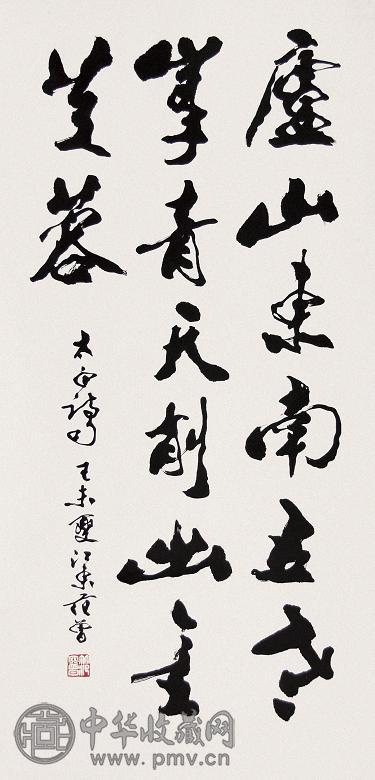 廬山東南五老
峯青天削出金
芙蓉
太白詩句 未夏江東范曾
中华收藏网
www.pmv.cn